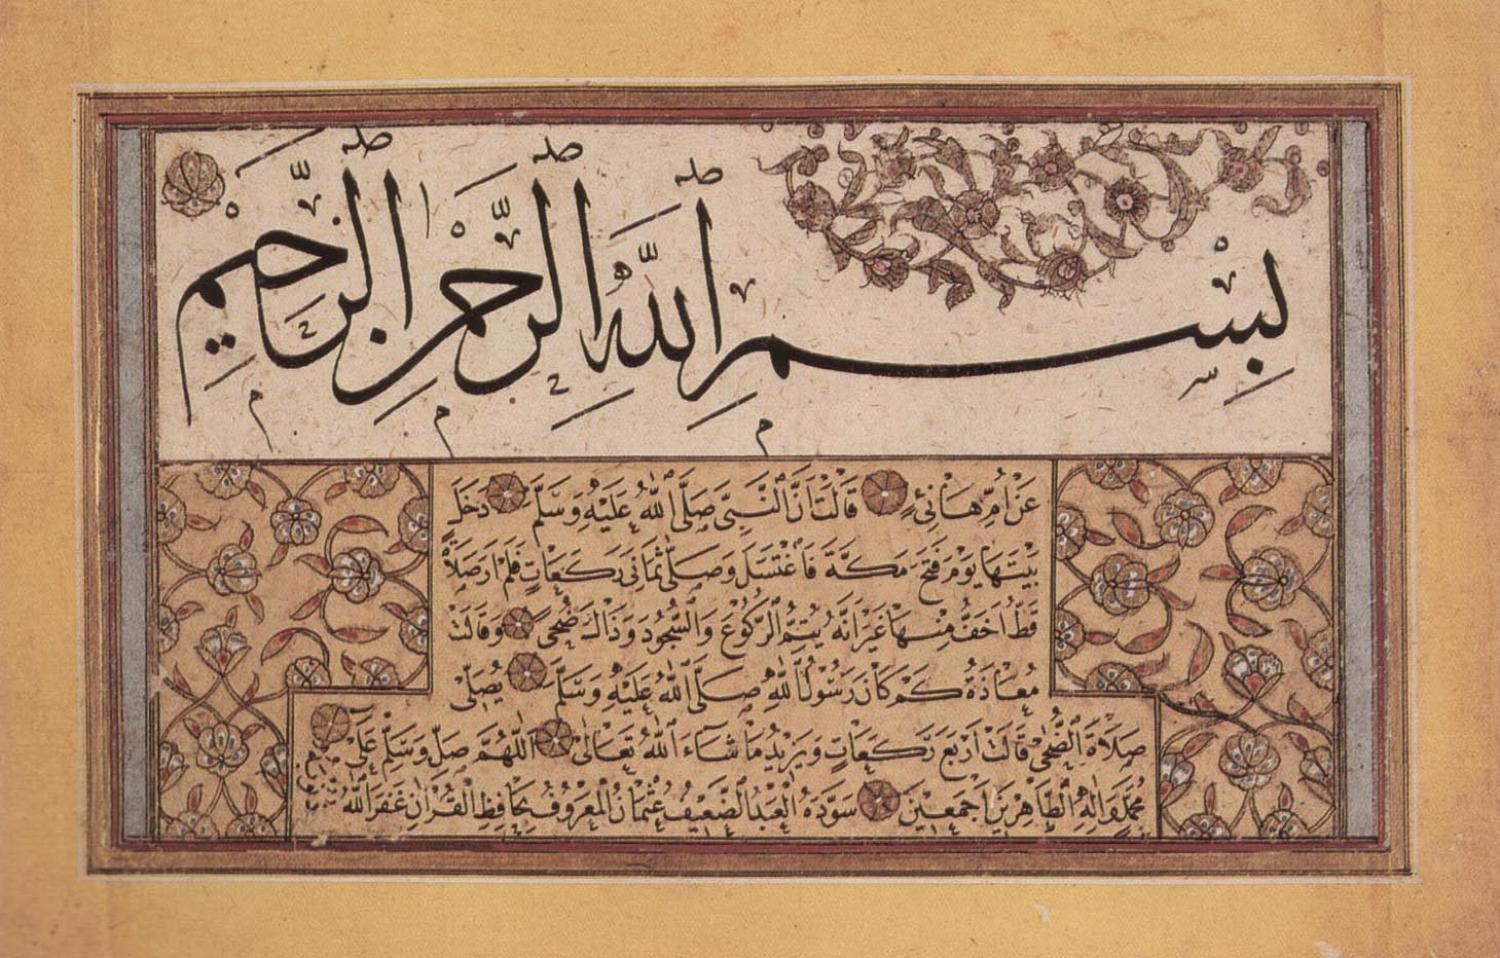 بِسْمِ اللّٰهِ الرَّحْمٰنِ الرَّحِيْمِ
عَنْ اُمِّ هَانِئٍ قَالَتْ اَنَّ النَّبِىَّ صَلَّى اللّٰهُ عَلَيْهِ وَسَلَّمَ دَخَلَ
بَيْتَهَا يَوْمَ فَتْحِ مَكَّةَ فَاغْتَسَلَ وَصَلّٰى ثَمَانِىَ رَكَعَاتٍ فَلَمْ اَرَ صَلَاةً
قَطُّ اَخَفَّ مِنْهَا غَيْرَ اَنَّهُ يُتِمُّ الرُّكُوعَ وَالسُّجُودَ وَذَاكَ ضُحًى وَقَالَتْ
مُعَاذَةُ كَمْ كَانَ رَسُولُ اللّٰهِ صَلَّى اللّٰهُ عَلَيْهِ وَسَلَّمَ يُصَلِّى
صَلَاةَ الضُّحٰى قَالَتْ اَرْبَعَ رَكَعَاتٍ وَيَزِيدُ مَا شَاءَ اللّٰهُ تَعَالٰى اَللّٰهُمَّ صَلِّ وَسَلِّمْ عَلٰى
مُحَمَّدٍ وَاٰلِهِ الطَّاهِرِينَ اَجْمَعِينَ سَوَّدَهُ الْعَبْدُ الضَّعِيفُ عُثْمَانُ الْمَعْرُوفُ بِحَافِظِ الْقُرْاٰنِ غَفَرَ اللّٰهُ